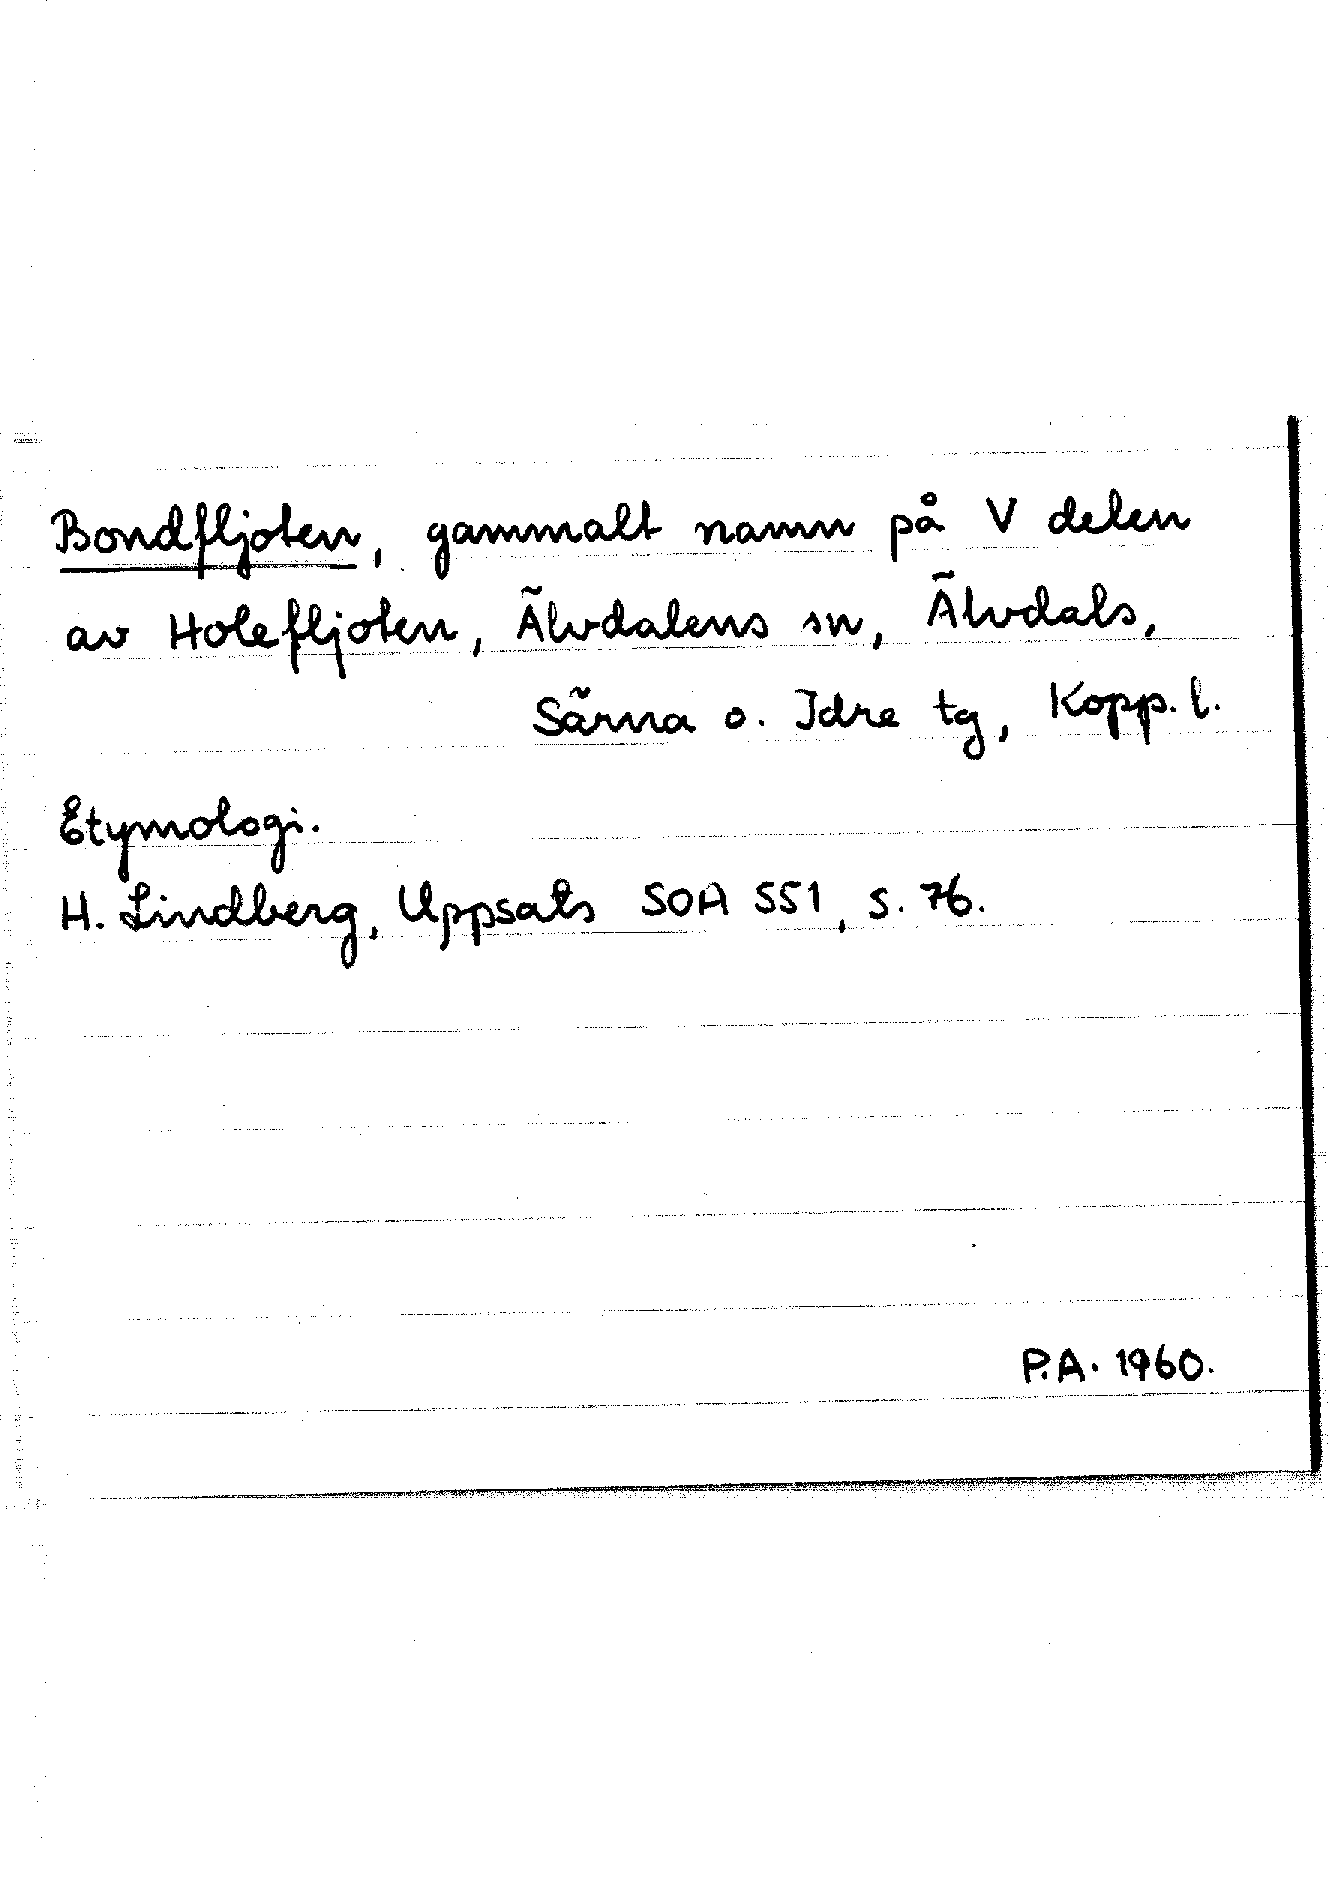 Bondfljoten, gammalt namn på V delen
av Holefljoten, Älvdalens sn, Älvdals,
Särna o. Idre tg, Kopp. l.
Etymologi.
H. Lindberg, Uppsats SOA 551, s. 76.
P.A. 1960.